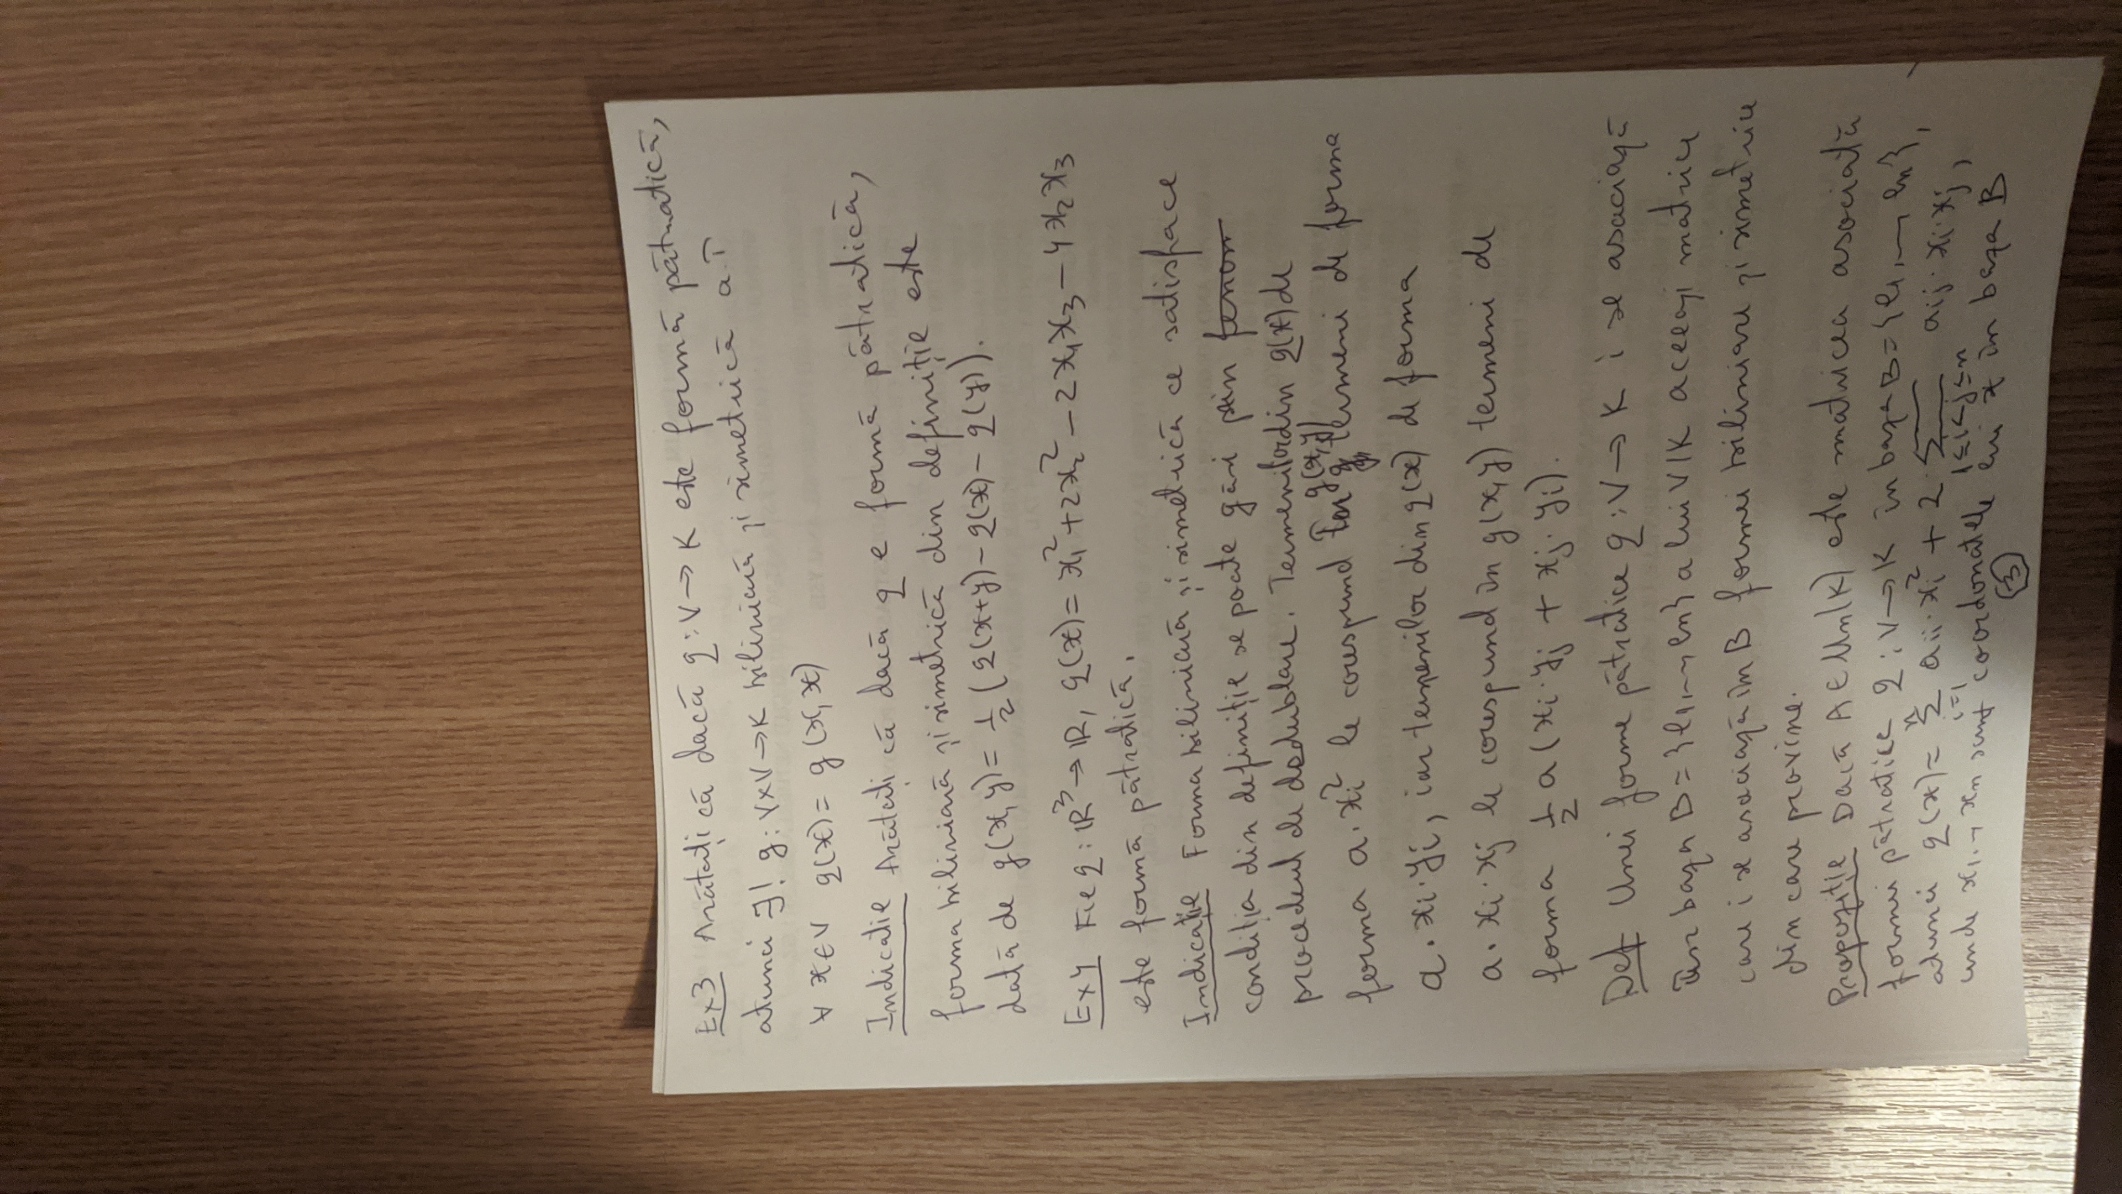 Ex3 Arătați că dacă q : V → K este formă pătratică,
atunci ∃! g : V×V → K biliniară și simetrică a.î
∀ x ∈ V q(x) = g(x, x)
Indicatie Arătați că dacă q e formă pătratică,
forma biliniară și simetrică din definiție este
dată de g(x, y) = 1/2 (q(x+y) - q(x) - q(y)).
Ex4 Fie q : ℝ³ → ℝ, q(x) = x₁² + 2x₂² - 2x₁x₃ - 4x₂x₃
este formă pătratică.
Indicație Forma biliniară și simetrică ce satisface
condiția din definiție se poate găsi prin
procedeul de dedublare. Termenilor din q(x) de
forma a · xᵢ² le corespund în g(x,y) termeni de forma
a · xᵢ · yᵢ, iar termenilor din q(x) de forma
a · xᵢ · xⱼ le corespund în g(x,y) termeni de
forma 1/2 a (xᵢ · yⱼ + xⱼ · yᵢ).
Def Unei forme pătratice q : V → K i se asociază
în baza B = {e₁, ..., eₙ} a lui V/K aceeași matrice
care i se asociază în B formei biliniare și simetrice
din care provine.
Propoziție Dacă A ∈ Mₙ(K) este matricea asociată
formei pătratice q : V → K în baza B = {e₁, ..., eₙ},
atunci q(x) = Σᵢ₌₁ⁿ aᵢᵢ · xᵢ² + 2 · Σ_{1≤i<j≤n} aᵢⱼ · xᵢ · xⱼ,
unde x₁, .., xₙ sunt coordonatele lui x în baza B
3